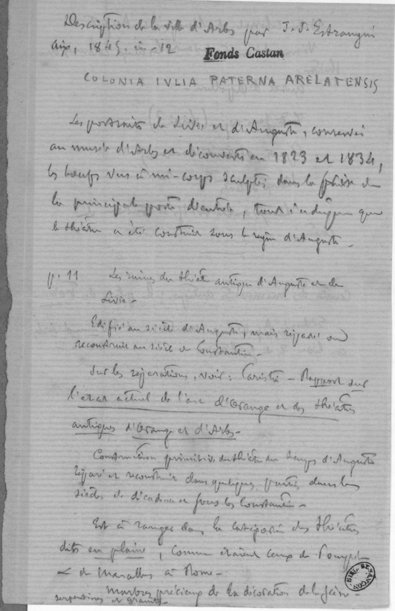 Description de la ville d'Arles par J. J. Estrangin
Aix, 1845, in-12
Fonds Castan
COLONIA IVLIA PATERNA ARELATENSIS
Les portraits de Livie et d'Auguste, conservés
au musée d'Arles et découverts en 1823 et 1834,
les bœufs vus à mi-corps sculptés dans la frise de
la principale porte d'entrée, tout indique que
le théâtre a été construit sous le règne d'Auguste.
p. 11 Les ruines du théâtre antique d'Auguste et de
Livie.
Edifié au siècle d'Auguste, mais réparé ou
reconstruit au siècle de Constantin.
Sur les réparations, voir : Caristie – Rapport sur
l'état actuel de l'arc d'Orange et des théâtres
antiques d'Orange et d'Arles.
Construction primitive du théâtre du temps d'Auguste
réparé et reconstruit dans quelques parties dans les
siècles de décadence et sous les Constantin.
Est à ranger dans la catégorie des théâtres
dits en plaine, comme étaient ceux de Pompée
et de Marcellus à Rome.
Marbres précieux de la décoration de la scène